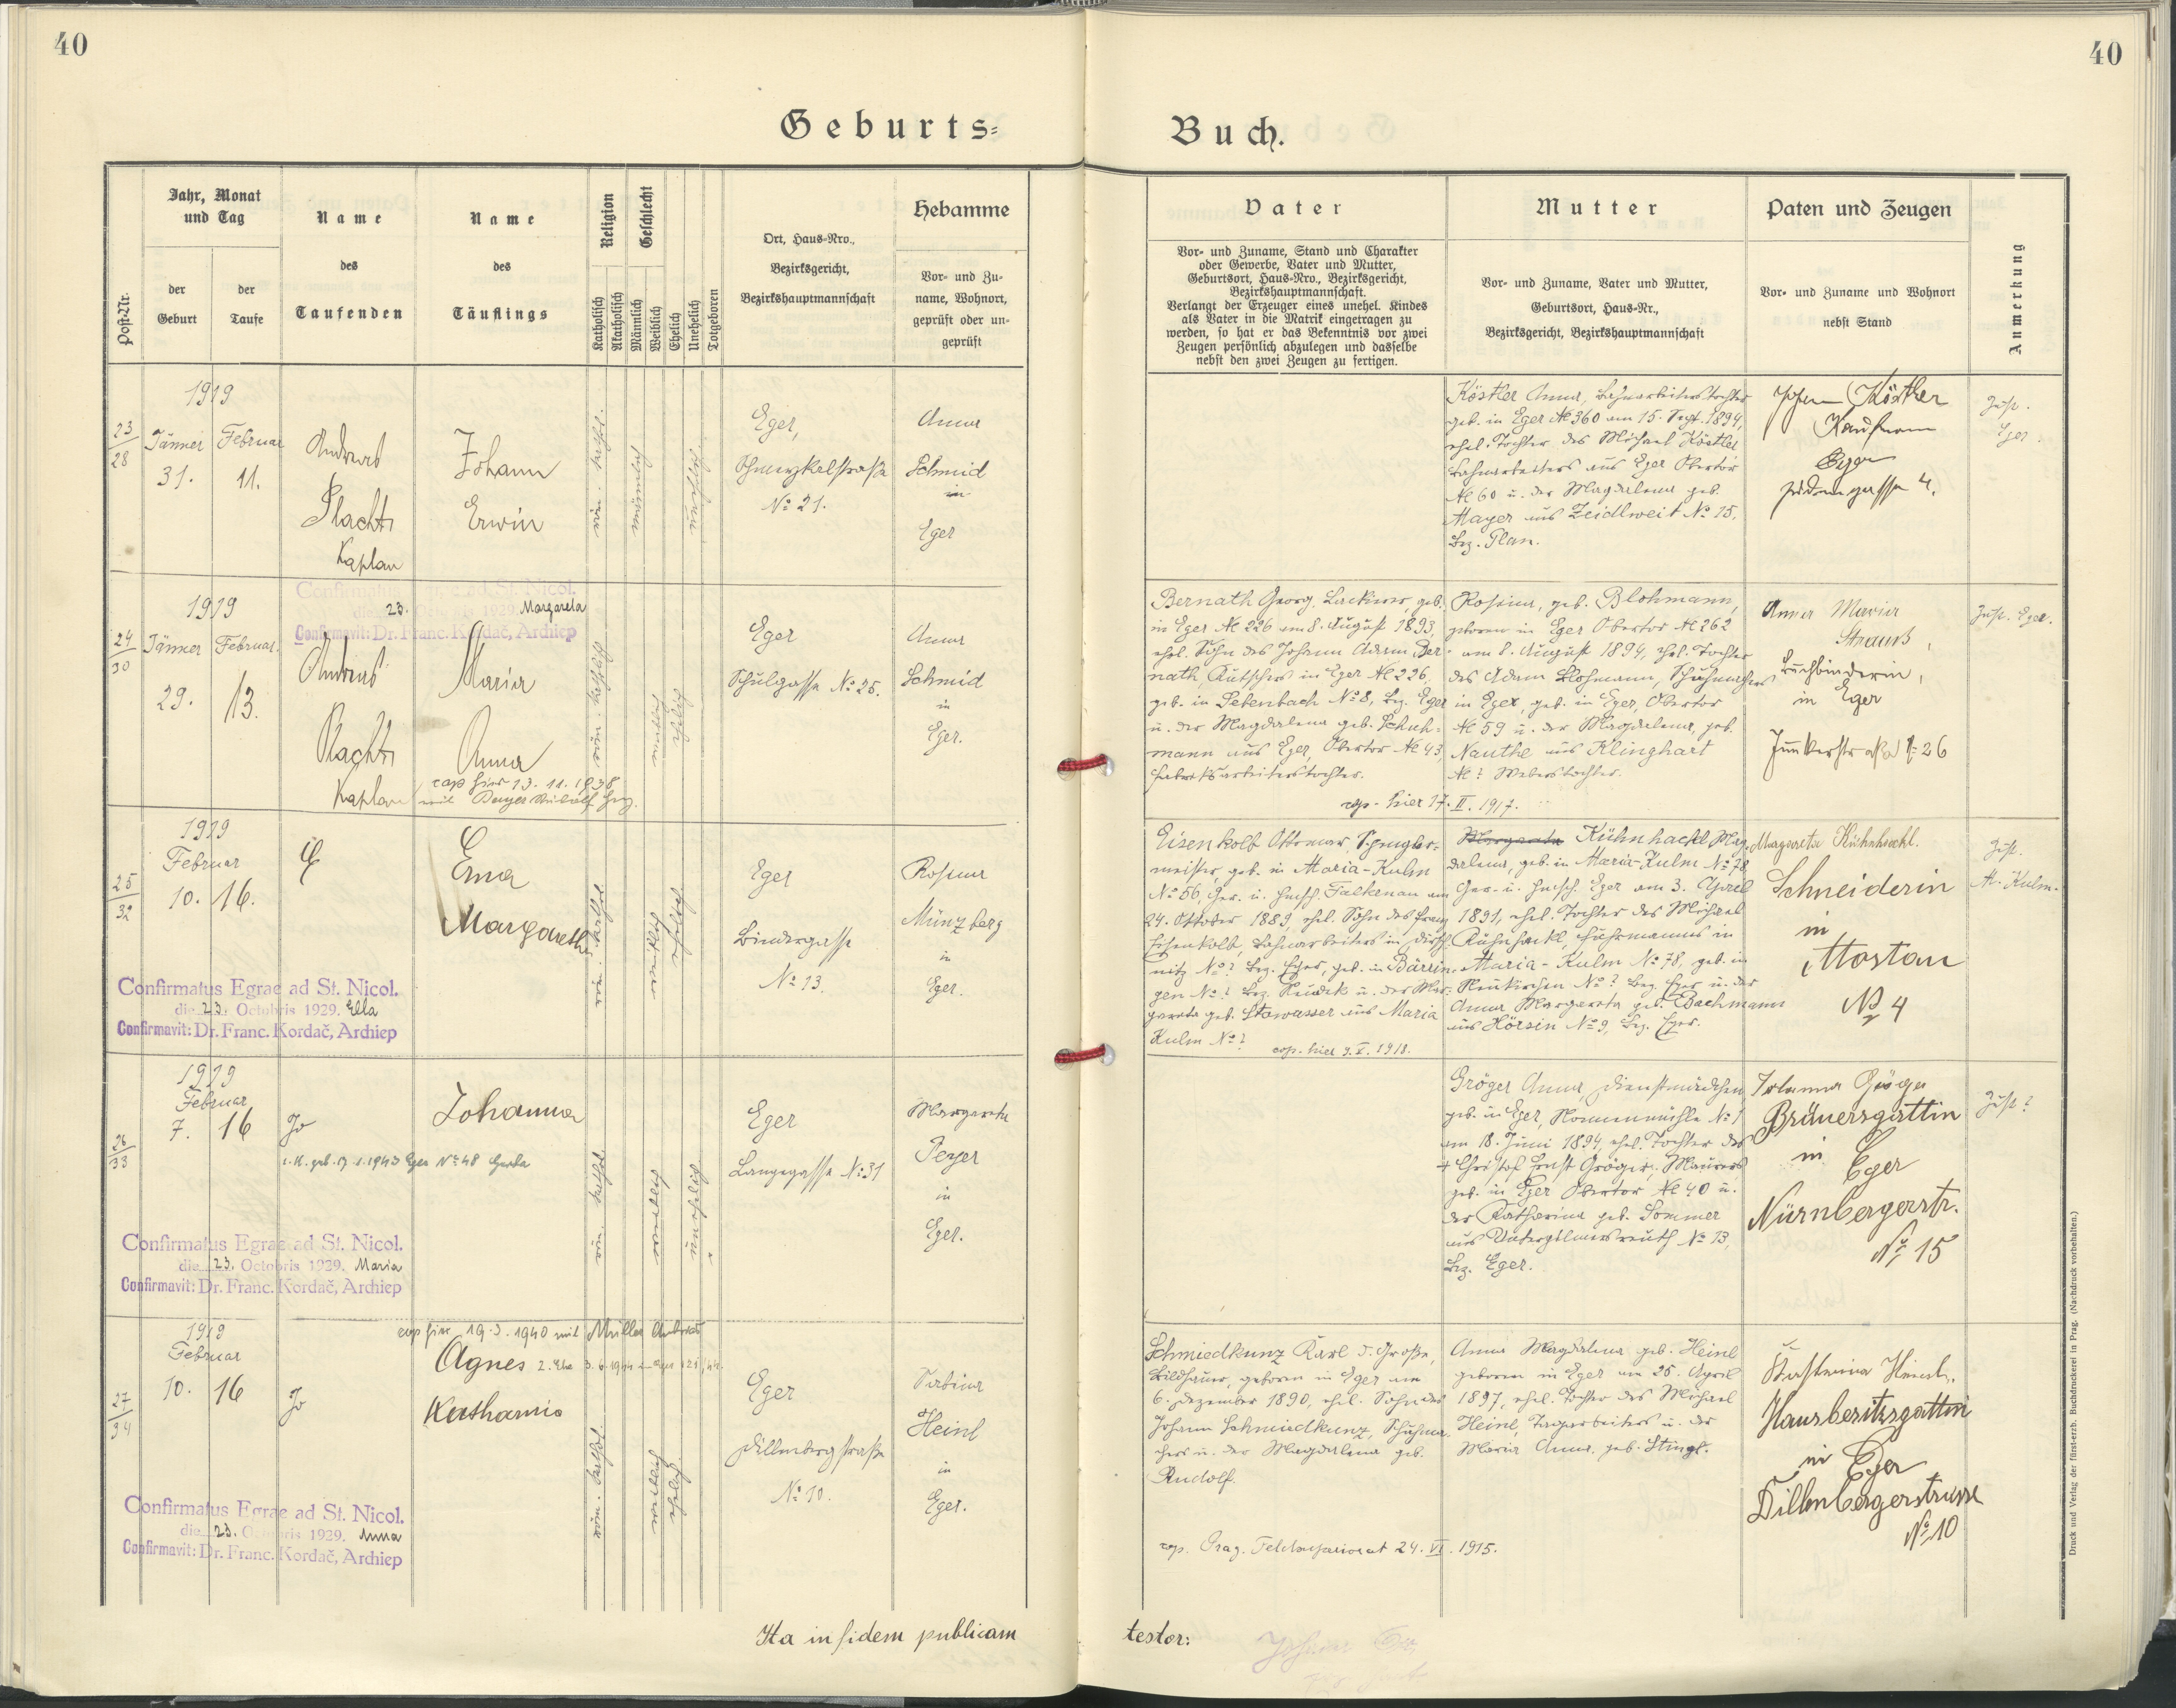 40
40
Geburts=
Buch.
Post-Nr.
Jahr, Monat
und Tag
der
Geburt
der
Taufe
Name
des
Taufenden
Name
des
Täuflings
Religion
Geschlecht
Katholisch
Akatholisch
Männlich
Weiblich
Ehelich
Unehelich
Totgeboren
Ort, Haus=Nro.,
Bezirksgericht,
Bezirkshauptmannschaft
Hebamme
Vor= und Zu=
name, Wohnort,
geprüft oder un=
geprüft
Vater
Vor= und Zuname, Stand und Charakter
oder Gewerbe, Vater und Mutter,
Geburtsort, Haus=Nro., Bezirksgericht,
Bezirkshauptmannschaft.
Verlangt der Erzeuger eines unehel. Kindes
als Vater in die Matrik eingetragen zu
werden, so hat er das Bekenntnis vor zwei
Zeugen persönlich abzulegen und dasselbe
nebst den zwei Zeugen zu fertigen.
Mutter
Vor= und Zuname, Vater und Mutter,
Geburtsort, Haus=Nr.,
Bezirksgericht, Bezirkshauptmannschaft
Paten und Zeugen
Vor= und Zuname und Wohnort
nebst Stand
Anmerkung
23
28
1919
Jänner Februar
31. 11.
Andreas
Plachti
Kaplan
Johann
Erwin
röm. kathol.
männlich
unehelich
Eger,
Schmeykalstraße
No 21.
Anna
Schmid
in
Eger
Köstler Anna, Bahnarbeiterstochter
geb. in Eger № 360 am 15. Sept. 1894,
ehel. Tochter des Michael Köstler
Bahnarbeiters aus Eger Obertor
№ 60 u. der Magdalena geb.
Mayer aus Zeidlweit No 15,
Bez. Plan.
Köstler
Kaufmann
Eger
4.
Zust.
Eger.
24
30
1919
Jänner Februar.
29. 13.
Confirmatus Egrae ad St. Nicol.
die 23. Octobris 1929. Margareta
Confirmavit: Dr. Franc. Kordač, Archiep
Andreas
Plachti
Kaplan
Maria
Anna
cop hier 13. 11. 1938
mit Rudolf
röm. katholisch
weiblich
ehelich
Eger
Schulgasse No 25.
Anna
Schmid
in
Eger.
Bernath Georg, Lackierer, geb.
in Eger № 226 am 8. August 1893,
ehel. Sohn des Johann Adam Ber=
nath, Kutschers in Eger № 226,
geb. in Sebenbach No 8, Bez. Eger
u. der Magdalena geb. Schuh=
mann aus Eger, Obertor № 43,
Fabriksarbeiterstochter.
Rosina, geb. Blohmann,
geboren in Eger Obertor № 262
am 8. August 1894, ehel. Tochter
des Adam Blohmann, Schuhmachers
in Eger, geb. in Eger, Obertor
№ 59 u. der Magdalena, geb.
Nauthe aus Klinghart
№ ? Weberstochter.
cop. hier 17. II. 1917.
Anna Maria
Strauß,
Buchbinderin,
in Eger
Junkerstraße 26
Zust. Eger.
25
32
1919
Februar
10. 16.
Erna
Margareth
Confirmatus Egrae ad St. Nicol.
die 23. Octobris 1929. Ella
Confirmavit: Dr. Franc. Kordač, Archiep
röm. kathol.
weiblich
ehelich
Eger
Bindergasse
No 13.
Rosina
Münzberg
in
Eger.
Eisenkolb Ottomar, Spengler=
meister, geb. in Maria-Kulm
No 56, Ger. u. Hptsch. Falkenau am
24. Oktober 1889, ehel. Sohn des Franz
Eisenkolb, Bahnarbeiters in Dirsch=
nitz No ? Bez. Eger, geb. in Bärrin=
gen No ? Bez. Neudek u. der Mar=
gareta geb. Stowasser aus Maria
Kulm No ?
cop. hier 9. V. 1918.
Margareta Kühnhackl Mag=
dalena, geb. in Maria-Kulm No 78,
Ger. u. Hptsch. Eger am 3. April
1891, ehel. Tochter des Michael
Kühnhackl, Fuhrmanns in
Maria-Kulm No 78, geb. in
Neukirchen No ? Bez. Eger u. der
Anna Margareta geb. Bachmann
aus Hörsin No 9, Bez. Eger.
Margareta Kühnhackl.
Schneiderin
in
Mostau
No 4
Zust.
M. Kulm.
26
33
1919
Februar
7. 16
Jo
Johanna
Confirmatus Egrae ad St. Nicol.
die 23. Octobris 1929. Maria
Confirmavit: Dr. Franc. Kordač, Archiep
röm. kathol.
weiblich
unehelich
Eger
Langegasse No 31
Margareta
Peyer
in
Eger.
Gröger Anna, Dienstmädchen
geb. in Eger, Nonnenmühle No 1
am 18. Juni 1894, ehel. Tochter des
+ Christof Ernst Gröger, Maurers
geb. in Eger Obertor № 40 u.
der Katharina geb. Sommer
aus Unterpilmersreuth No 13,
Bez. Eger.
Johanna Gröger
Bräuersgattin
in
Eger
Nürnbergerstr.
No 15
Zust ?
27
34
1919
Februar
10. 16
Jo
cop hier 19. 3. 1940 mit Müller Andreas
Agnes
Katharina
Confirmatus Egrae ad St. Nicol.
die 23. Octobris 1929. Anna
Confirmavit: Dr. Franc. Kordač, Archiep
röm. kathol.
weiblich
ehelich
Eger
Dillenbergstraße
No 10.
Sabina
Heinl
in
Eger.
Schmiedkunz Karl d. Große,
Bildhauer, geboren in Eger am
6. Dezember 1890, ehel. Sohn des
Johann Schmiedkunz, Schuhma=
chers u. der Magdalena geb.
Rudolf.
cop. Prag. Feldsuperiorat 24. VI. 1915.
Anna Magdalena geb. Heinl
geboren in Eger am 25. April
1897, ehel. Tochter des Michael
Heinl, Tagarbeiters u. der
Maria Anna, geb. Stingl.
Hausbesitzersgattin
in Eger
Dillenbergerstrasse
No 10
Ita in fidem publicam
testor:
Druck und Verlag der fürst-erzb. Buchdruckerei in Prag. (Nachdruck vorbehalten.)